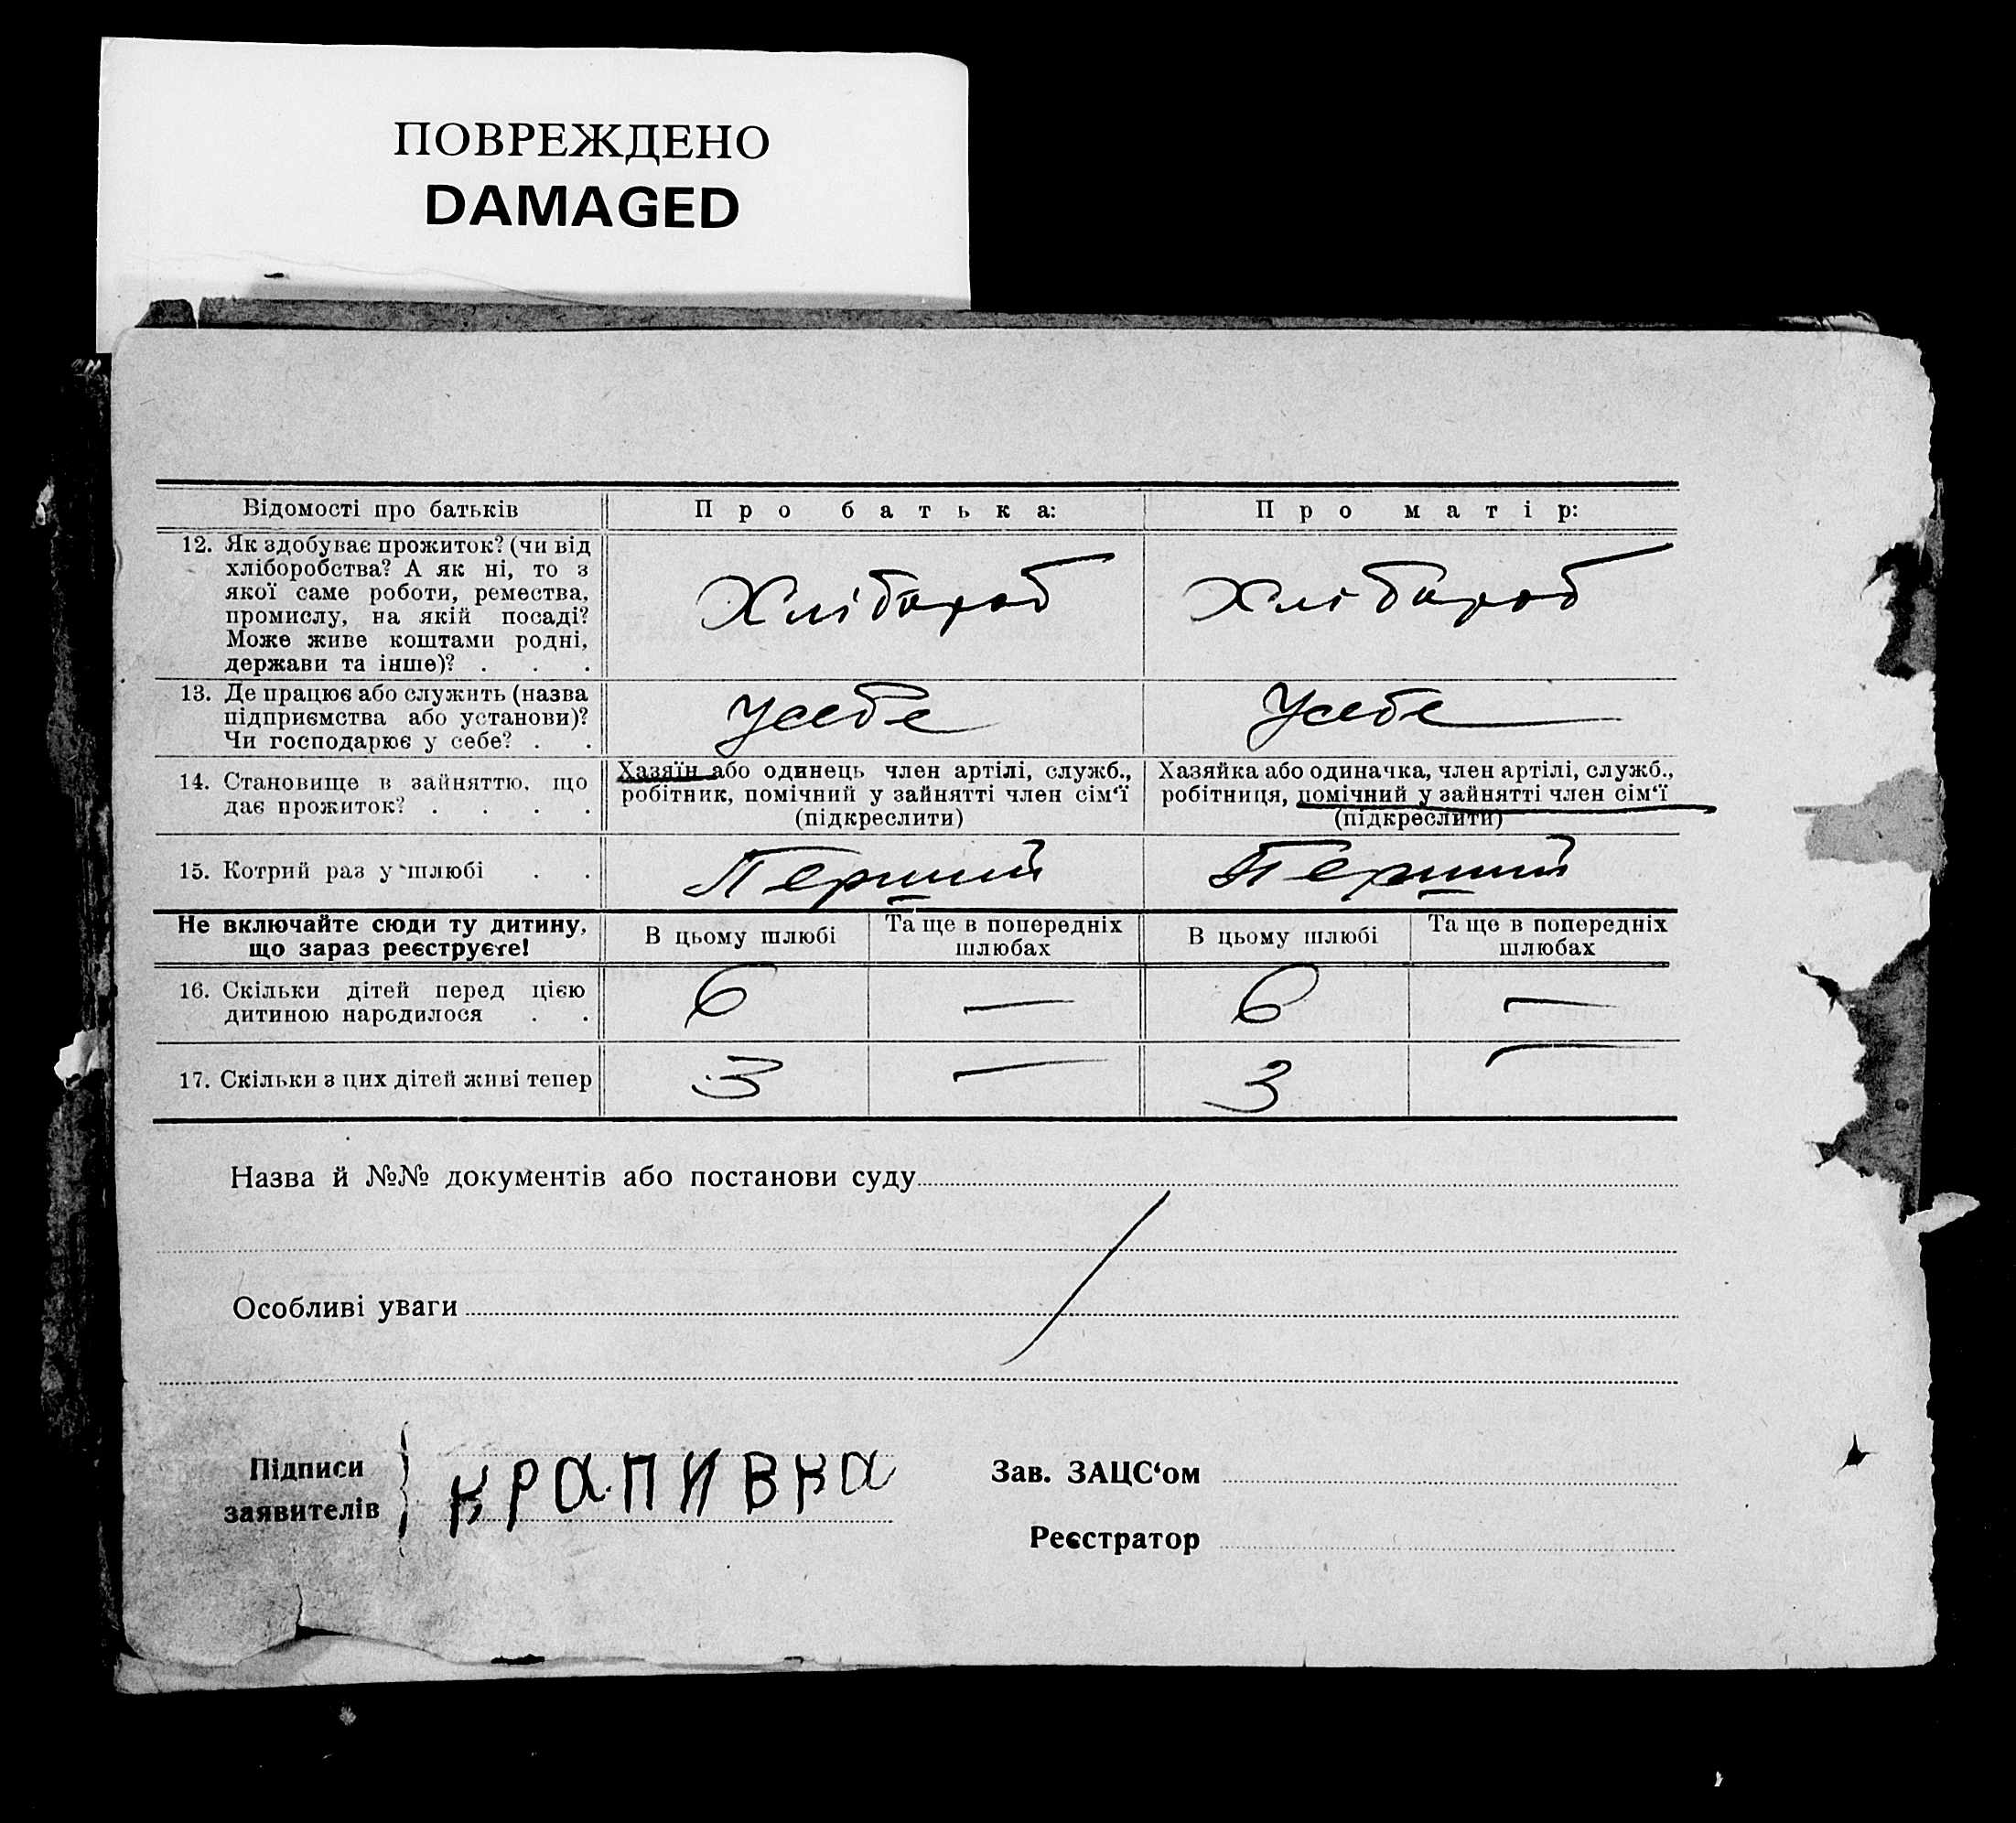 ПОВРЕЖДЕНО
DAMAGED
Відомості про батьків
Про батька:
Про матір:
12. Як здобуває прожиток? (чи від
хліборобства? А як ні, то з
якої саме роботи, ремества,
промислу, на якій посаді?
Може живе коштами родні,
держави та інше)? . . .
Хлібороб
Хлібороб
13. Де працює або служить (назва
підприємства або установи)?
Чи господарює у себе? . .
Усебе
Усебе
14. Становище в зайняттю, що
дає прожиток? . . . .
Хазяїн або одинець член артілі, служб.,
робітник, помічний у зайнятті член сім‘ї
(підкреслити)
Хазяйка або одиначка, член артілі, служб.,
робітниця, помічний у зайнятті член сім‘ї
(підкреслити)
15. Котрий раз у шлюбі . .
Перший
Перший
Не включайте сюди ту дитину,
що зараз реєструєте!
В цьому шлюбі
Та ще в попередніх
шлюбах
В цьому шлюбі
Та ще в попередніх
шлюбах
16. Скільки дітей перед цією
дитиною народилося . .
6
—
6
—
17. Скільки з цих дітей живі тепер
3
—
3
—
Назва й №№ документів або постанови суду
Особливі уваги
Підписи
заявителів
крапивка
Зав. ЗАЦС‘ом
Реєстратор